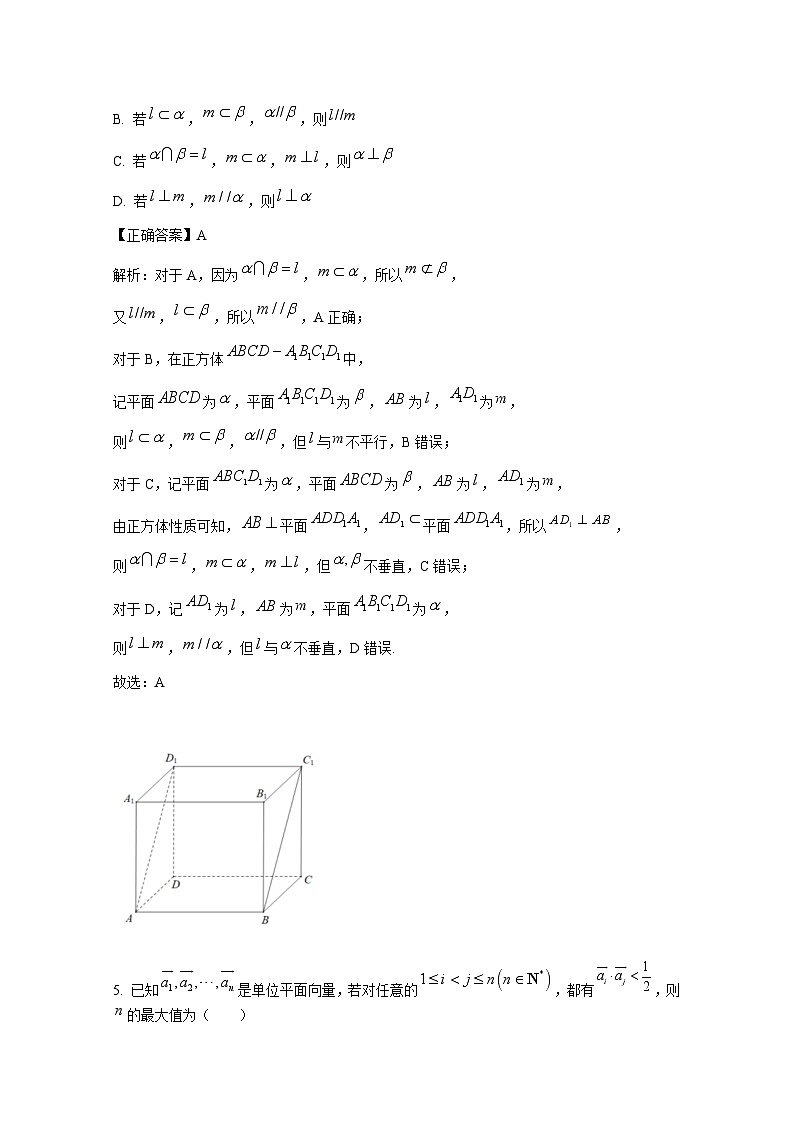 B. 若l⊂α,m⊂β,α//β,则l//m
C. 若α∩β=l,m⊂α,m⊥l,则α⊥β
D. 若l⊥m,m//α,则l⊥α
【正确答案】A
解析:对于A,因为α∩β=l,m⊂α,所以m⊄β,
又l//m,l⊂β,所以m//β,A正确;
对于B,在正方体ABCD−A₁B₁C₁D₁中,
记平面ABCD为α,平面A₁B₁C₁D₁为β,AB为l,A₁D₁为m,
则l⊂α,m⊂β,α//β,但l与m不平行,B错误;
对于C,记平面ABC₁D₁为α,平面ABCD为β,AB为l,AD₁为m,
由正方体性质可知,AB⊥平面ADD₁A₁,AD₁⊂平面ADD₁A₁,所以AD₁⊥AB,
则α∩β=l,m⊂α,m⊥l,但α,β不垂直,C错误;
对于D,记AD₁为l,AB为m,平面A₁B₁C₁D₁为α,
则l⊥m,m//α,但l与α不垂直,D错误.
故选:A
D₁ C₁
A₁ B₁
D C
A B
5. 已知a₁⃗,a₂⃗,⋯,aₙ⃗是单位平面向量,若对任意的1≤i<j≤n(n∈N*),都有aᵢ⃗·aⱼ⃗<1/2,则
n的最大值为( )